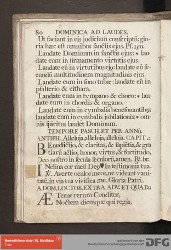 80 DOMINICA AD LAUDES.
Ut faciant in eis judicium conscriptũ: glo
ria hæc est omnibus sanctis ejus. Ps. 150.
Laudate Dominum in sanctis ejus: lau
date eum in firmamento virtutis ejus.
Laudate eum in virtutibus ejus: laudate eũ se-
cundũ multitudinem magnitudinis ejus.
Laudate eum in sono tubæ: laudate eũ in
psalterio & cithara.
Laudate eum in tympano & choro: lau
date eum in chordis & organo.
Laudate eum in cymbalis benesonantibus
laudate eum in cymbalis jubilationis: om
nis spiritus laudet Dominum.
TEMPORE PASCHALI PRO ANNI.
ANTIPH. Alleluja, alleluja, alleluja. CAPIT:
Benedictio, & claritas, & sapiẽtia, & gra
tiarũ actio, honor, virtus, & fortitudo,
Deo nostro in secula seculorum, amen.
Inclina cor meũ Deus in testimonia tua.
Averte oculos meos, ne videant vani-
tatẽ, in via tua vivifica me. Gloria Patri.
A DOM. I. OCTOB. EXTRA ADV. ET QUAD:
Æterne rerum Conditor,
Noctem diemque qui regis,